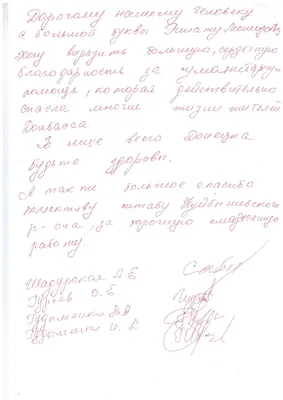 Дорогому нашему Человеку
с большой буквы Ринату Леонидовичу
Хочу выразить большую, сердечную
благодарность за гуманитарную
помощь, которая действительно
спасла многие жизни жителей
Донбасса.
В лице всего Донецка
будьте здоровы.
А так же большое спасибо
коллективу штабу Куйбышевского
р-она, за хорошую слаженную
работу.
Гуреев О. Б.